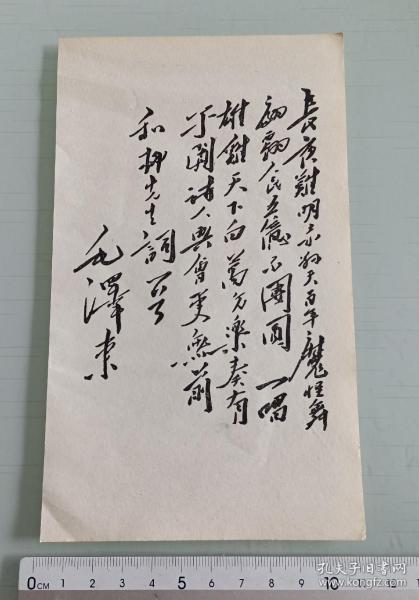 長夜難明赤縣天百年魔怪舞
翩翩人民五億不團圓 一唱
雄雞天下白萬方樂奏有
于闐詩人興會更無前
和柳先生詞一首
毛澤東
0CM 1 2 3 4 5 6 7 8 9 10
孔夫子旧书网